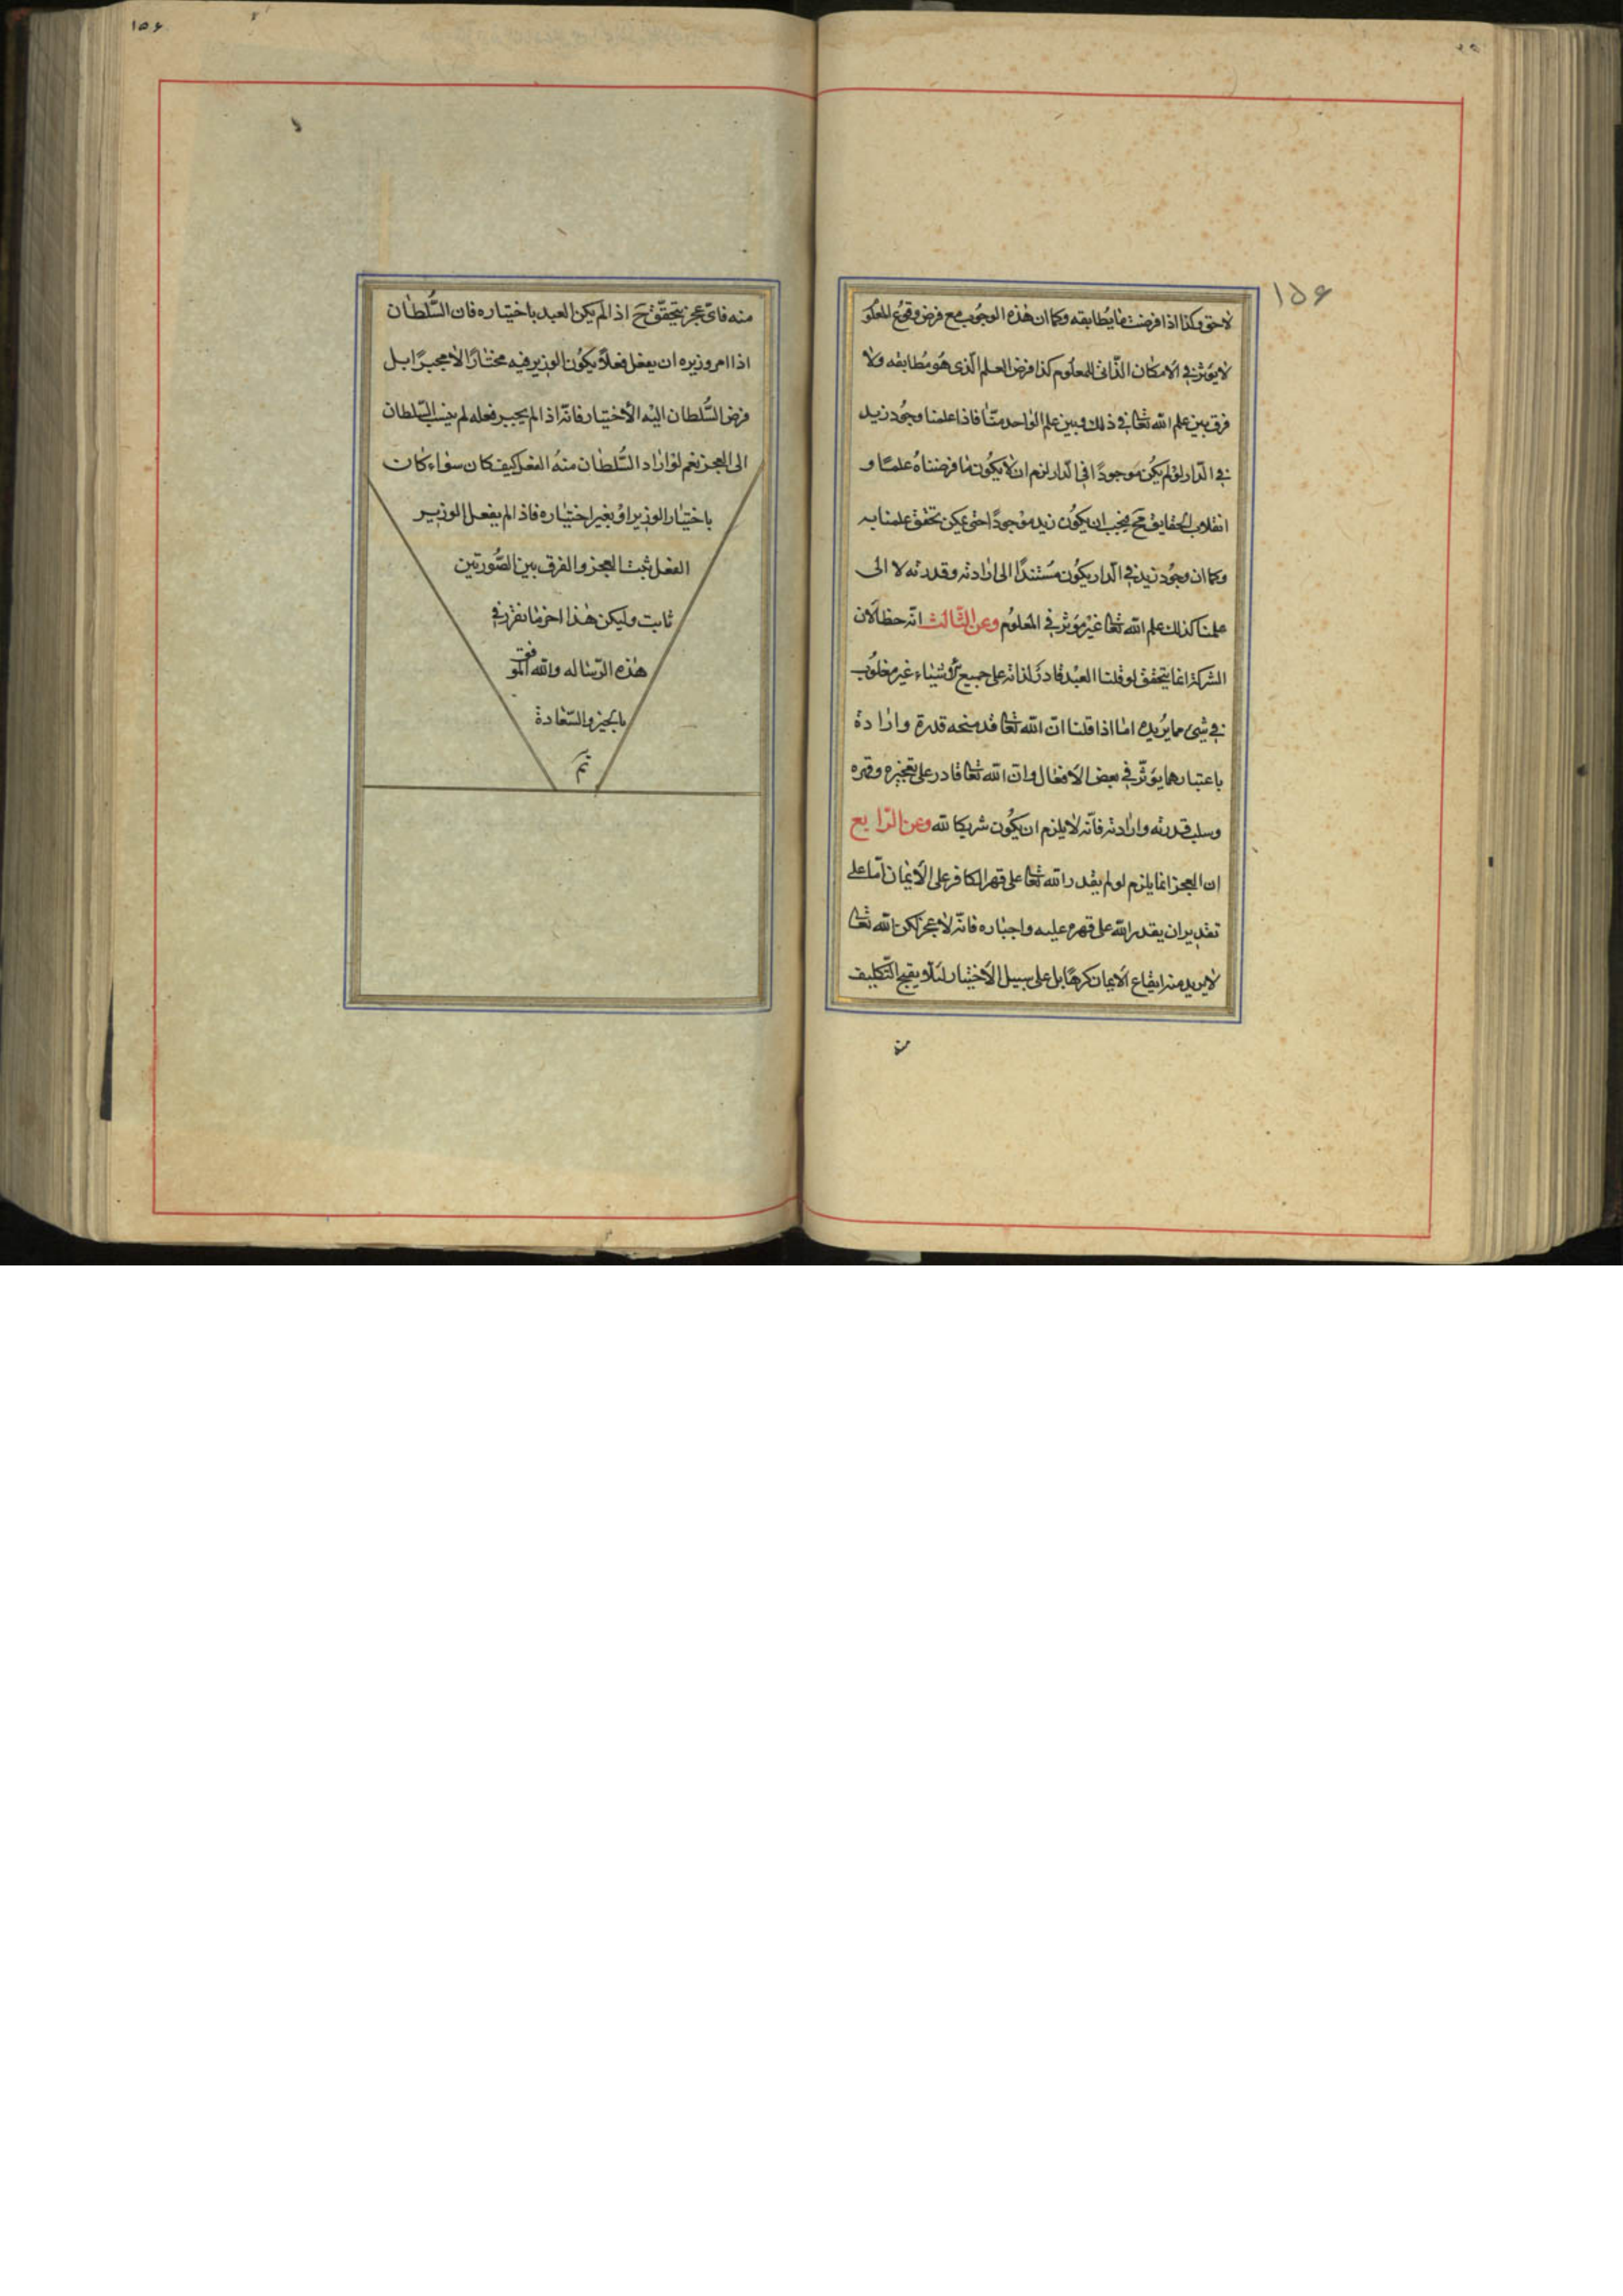 ١٥۶
لاحق وكذا اذا فرضت ما يطابقه وكما ان هذه الوجوب مع فرض وقوع المعلو
لا يؤثر في الامكان الذاتي للمعلوم كذا فرض العلم الذى هو مطابقه ولا
فرق بين علم الله تعا في ذلك وبين علم الواحد منّا فاذا علمنا وجود زيد
في الدار لو لم يكن موجودًا في الدار لزم ان لا يكون ما فرضناه علمًا و
انقلاب الحقايق مح فيجب ان يكون زيد موجودًا حتى يمكن تحقق علمنا به
وكما ان وجود زيد في الدار يكون مستندًا الى ارادته وقدرته لا الى
علمنا كذلك علم الله تعا غير مؤثر في المعلوم وعن الثالث انّه خطا لان
الشركة انما يتحقق لو قلنا العبد قادر لذاته على جميع الاشياء غير مغلوب
في شئ مما يريده امّا اذا قلنا انّ الله تعا قد منحه قدرة وارادة
باعتبارهما يؤثّر في بعض الافعال وان الله تعا قادر على تعجيزه وقهره
وسلب قدرته وارادته فانّه لا يلزم ان يكون شريكا لله وعن الرابع
ان العجز انما يلزم لو لم يقدر الله تعا على قهر الكافر على الايمان امّا على
تقدير ان يقدر الله على قهره عليه واجباره فانّه لا عجز لكن الله تعا
لا يريد منه ايقاع الايمان كرهًا بل على سبيل الاختيار لئلا يقبح التكليف
١٥۶
منه فاىّ عجز يتحقّق ح اذ الم يكن العبد باختياره فان السُّلطان
اذا امر وزيره ان يفعل فعلًا ويكون الوزير فيه مختارًا لا مجبرًا بل
فرض السُّلطان اليه الاختيار فانّه اذ الم يجبر فعله لم ينسب السّلطان
الى العجز نعم لو اراد السُّلطان منه الفعل كيف كان سواء كان
باختيار الوزير او بغير اختياره فاذ الم يفعل الوزير
الفعل ثبت العجز والفرق بين الصّورتين
ثابت وليكن هذا اخر ما نقرر في
هذه الرّساله والله الموفق
بالخير والسّعادة
تم